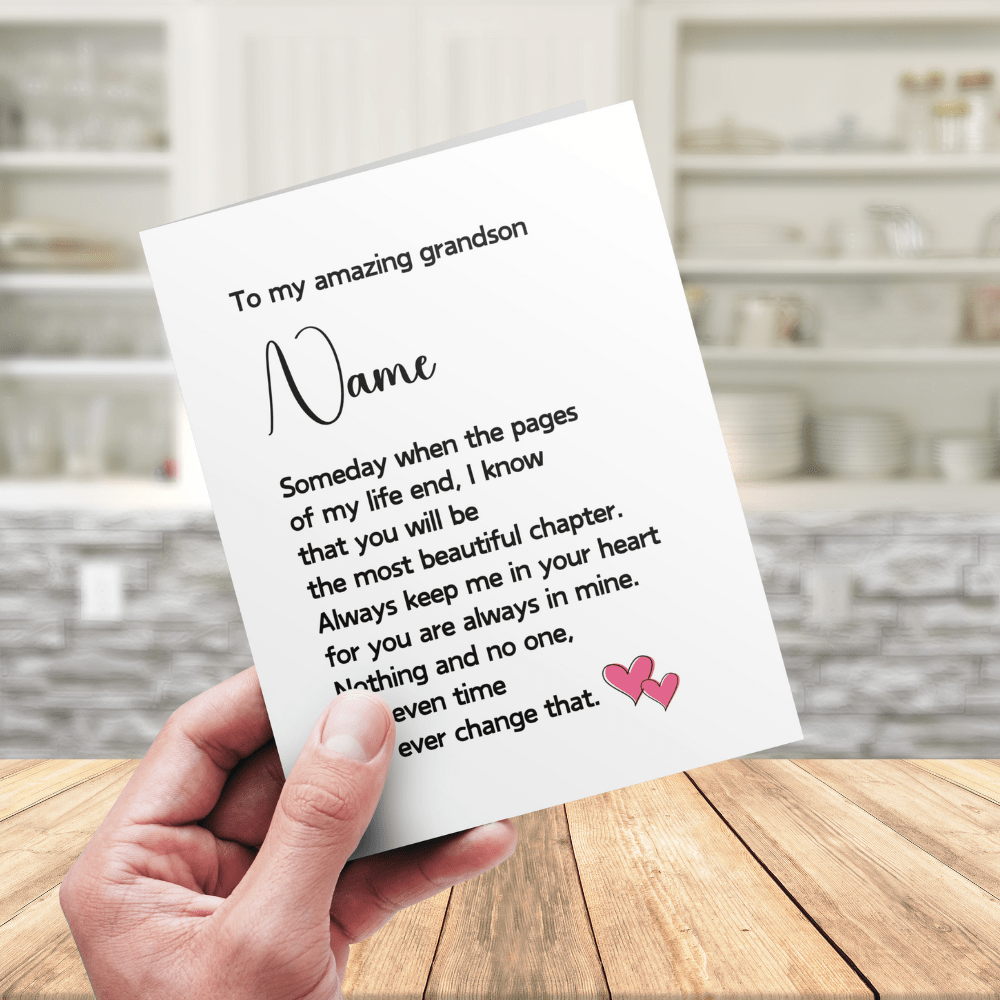 To my amazing grandson
Name
Someday when the pages
of my life end, I know
that you will be
the most beautiful chapter.
Always keep me in your heart
for you are always in mine.
Nothing and no one,
even time
ever change that.